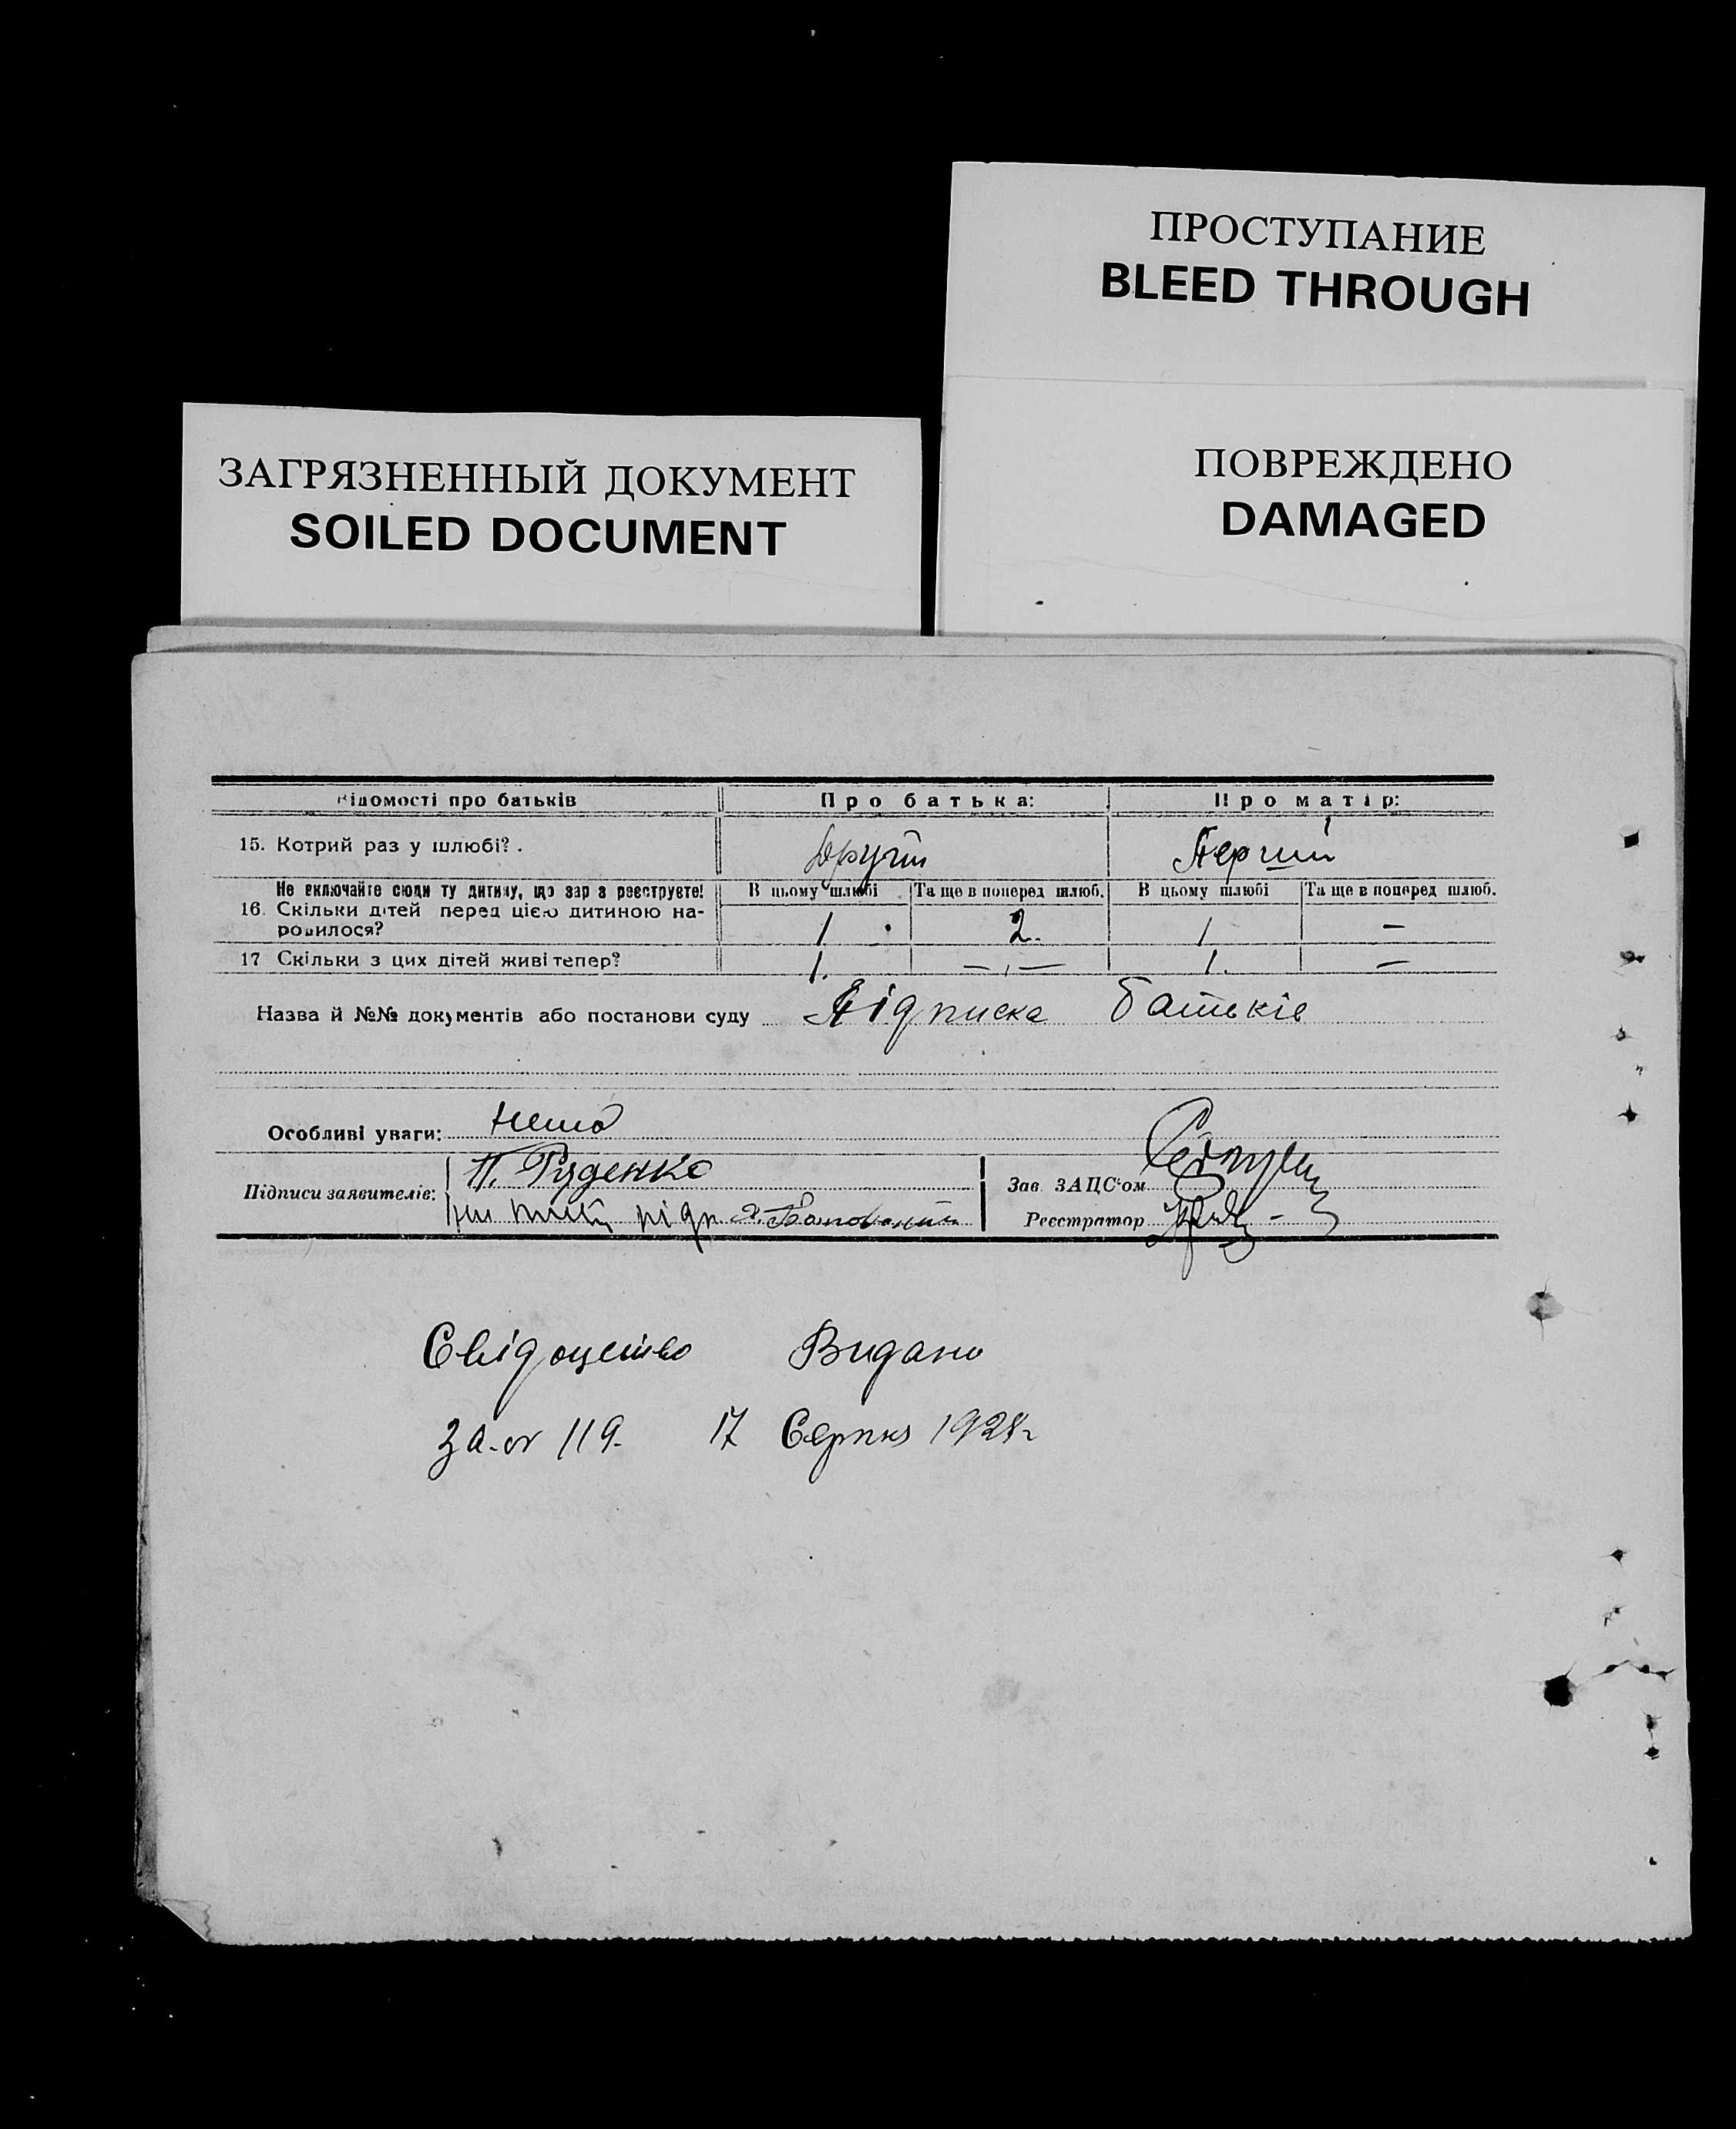 ПРОСТУПАНИЕ
BLEED THROUGH
ЗАГРЯЗНЕННЫЙ ДОКУМЕНТ
SOILED DOCUMENT
ПОВРЕЖДЕНО
DAMAGED
Відомості про батьків Про батька: Про матір:
15. Котрий раз у шлюбі? . Другий Перший
Не включайте сюди ту дитину, що зараз реєструєте! В цьому шлюбі Та ще в поперед шлюб. В цьому шлюбі Та ще в поперед шлюб.
16. Скільки дітей перед цією дитиною на-
родилося? 1 2. 1 —
17 Скільки з цих дітей живі тепер? 1. — 1. —
Назва й №№ документів або постанови суду Підписка батьків
Особливі уваги: нема
Підписи заявителів: П. Руденко
Зав. ЗАЦС'ом
Реєстратор
Свідоцтво Видано
за № 119. 17 Серпня 1928г